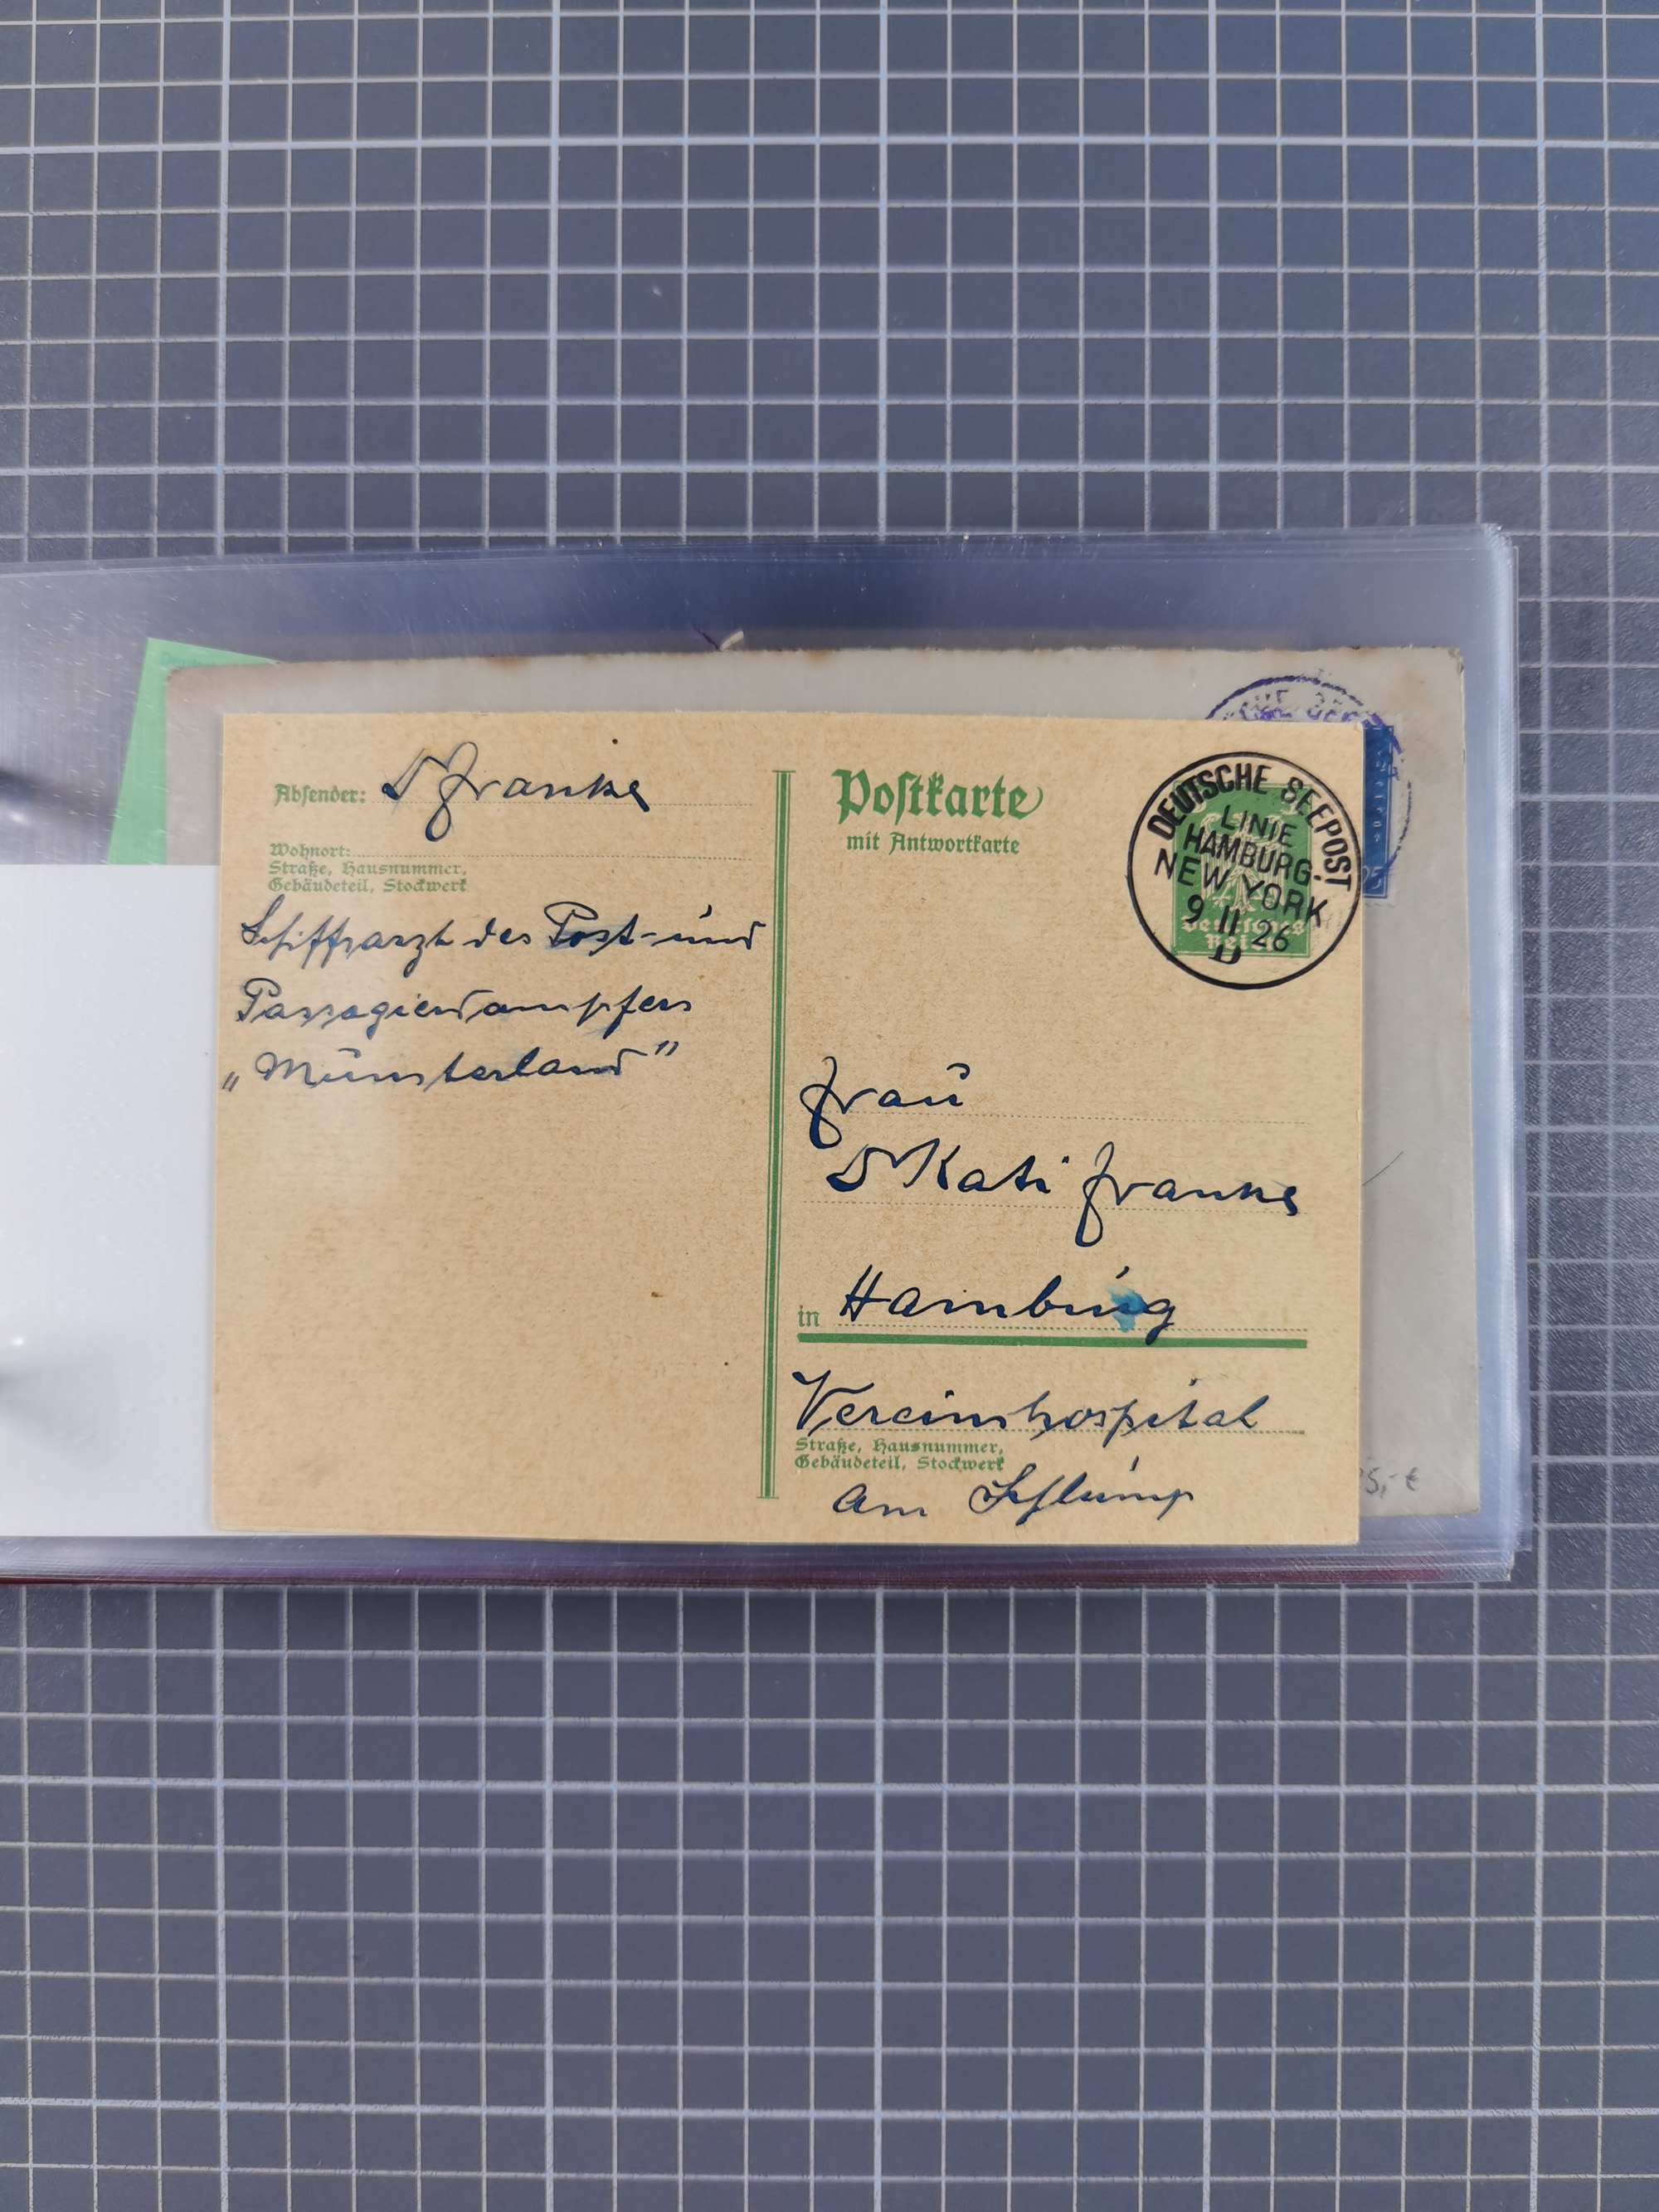 Absender: Dr Franke
Wohnort:
Straße, Hausnummer,
Gebäudeteil, Stockwerk
Schiffsarzt des Post- und
Passagierdampfers
„Münsterland”
Postkarte
mit Antwortkarte
DEUTSCHE SEEPOST
LINIE
HAMBURG-
NEW YORK
9 11 26
D
Deutsches
Reich
Frau
Dr Kati Franke
in Hamburg
Vereinshospital
Straße, Hausnummer,
Gebäudeteil, Stockwerk
am Schlump
5,- €